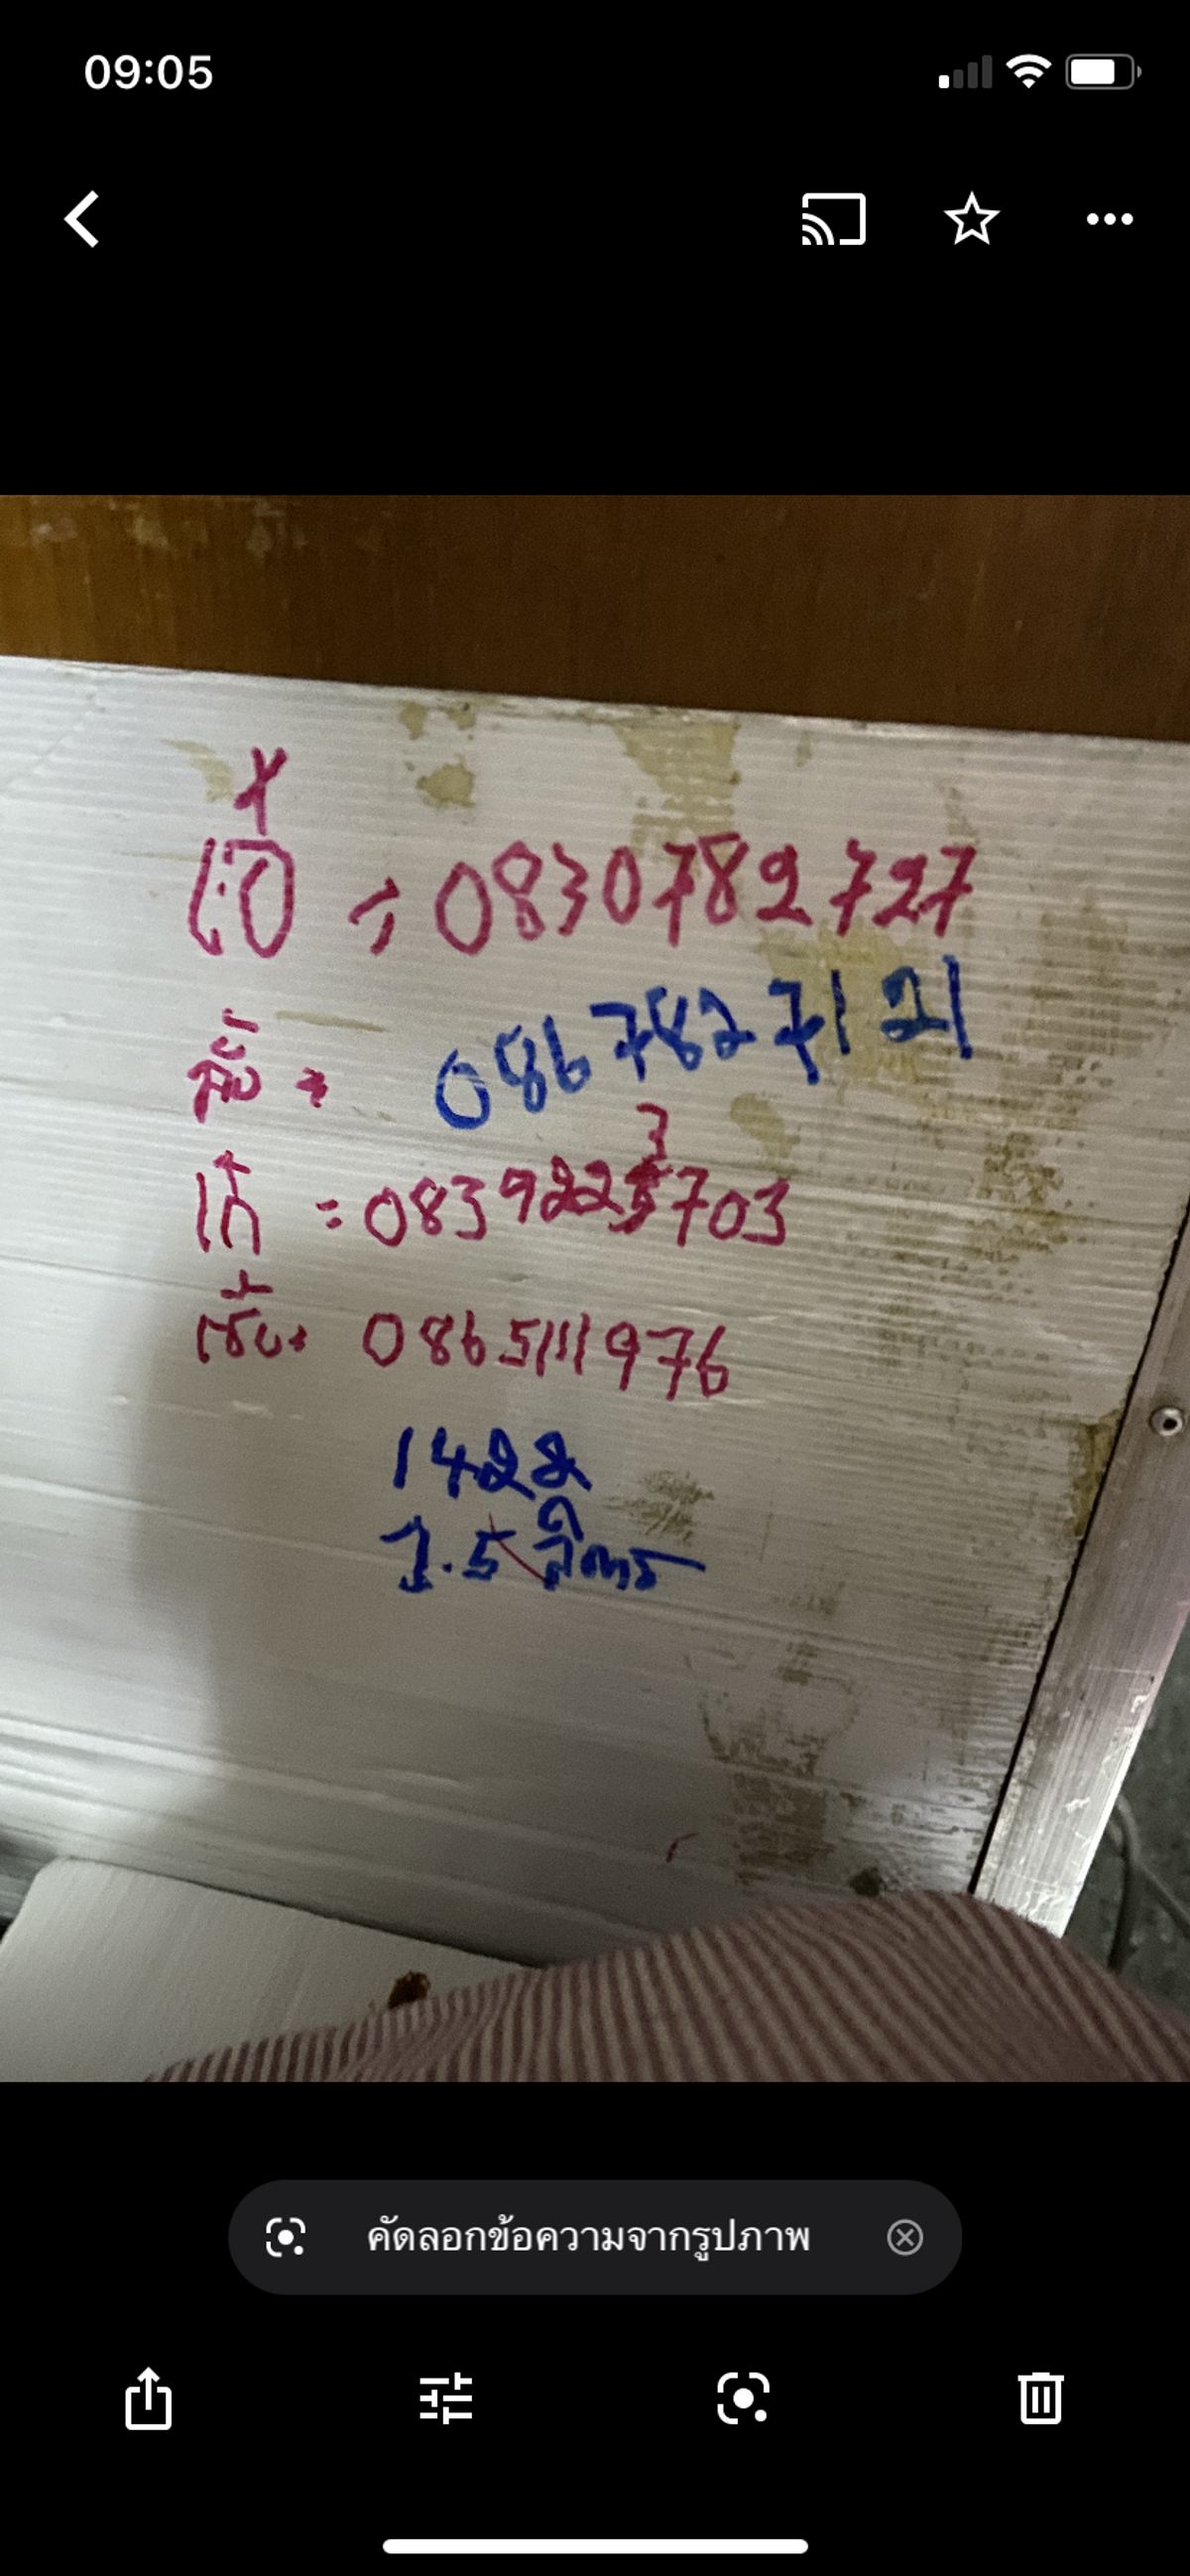 09:05
= 0830782727
= 0867827121
= 0839223703
0865111976
1422
1.5 ลิตร
คัดลอกข้อความจากรูปภาพ